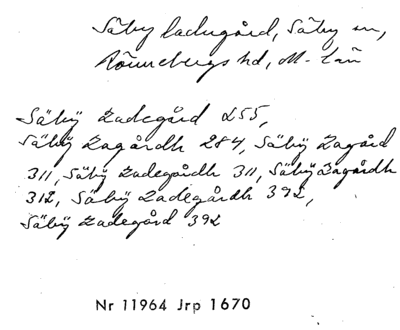 Säby ladugård, Säby sn,
Rönnebergs hd, M-län
Säbÿ Ladegård 255,
Säbÿ Lagårdh 284, Säbÿ Lagård
311, Säbÿ Ladegårdh 311, Säbÿ Lagårdh
312, Säbÿ Ladegårdh 392,
Säbÿ Ladegård 392
Nr 11964 Jrp 1670